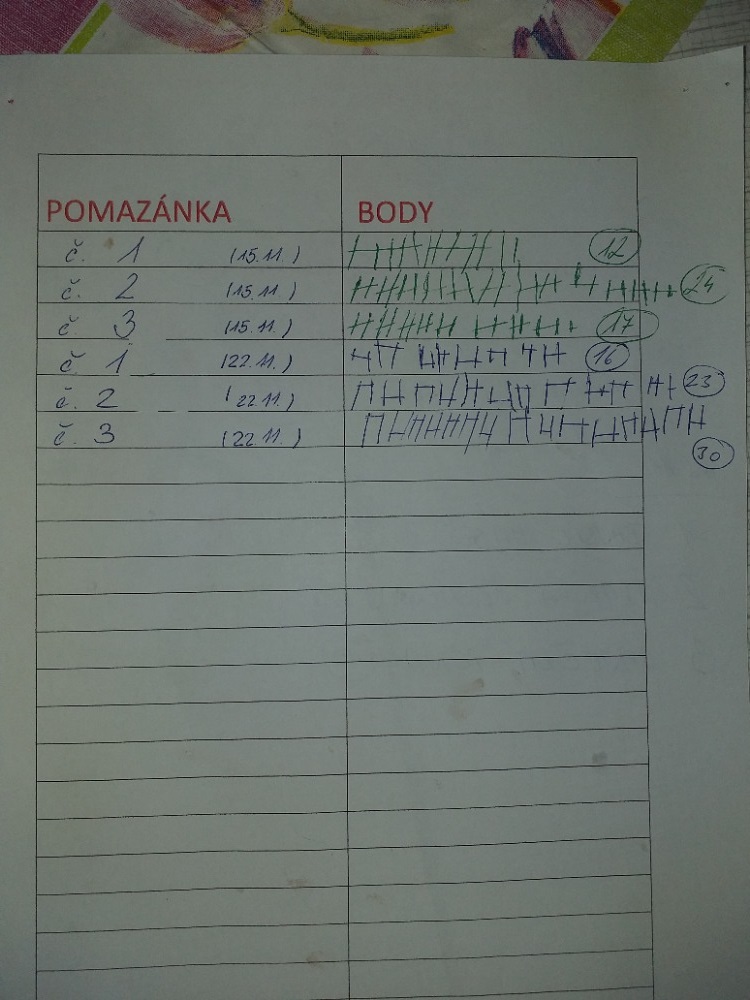 POMAZÁNKA BODY
č. 1 (15.11.) 12
č. 2 (15.11.) 24
č 3 (15.11.) 17
č 1 (22.11.) 16
č. 2 (22.11.) 23
č. 3 (22.11.)
30